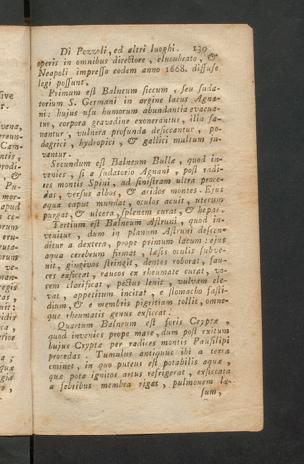 Di Pozzoli, ed altri luoghi. 139
operis in omnibus directore, elucubrato, &
Neapoli impresso eodem anno 1668. diffuse
legi possunt.
Primum est Balneum siccum, seu Suda-
torium S. Germani in argine lacus Agna-
ni: hujus usu humorum abundantia evacua-
tur, corpora gravedine exonerantur, ilia sa-
nantur, vulnera profunda desiccantur, po-
dagrici, hydropici, & gallici multum ju-
vantur.
Secundum est Balneum Bullæ, quod in-
venies, si a sudatorio Agnani, post radi-
ces montis Spini, ad sinistram ultra proce-
das, versus albos, & aridos montes. Ejus
aqua caput mundat, oculos acuit, uterum
purgat, & ulcera, splenem curat, & hepar.
Tertium est Balneum Astruni, quod in-
venitur, dum in planum Astruni descen-
ditur a dextera, prope primum lacum: ejus
aqua cerebrum firmat, læsis oculis subve-
nit, gingivas stringit, dentes roborat, fau-
ces exsiccat, raucos ex rheumate curat, vo-
cem clarificat, pectus lenit, vulvam ele-
vat, appetitum incitat, e stomacho fasti-
dium, & e membris pigritiam tollit, omne-
que rheumatis genus exsiccat.
Quartum Balneum est foris Cryptæ,
quod invenies prope mare, dum post exitum
hujus Cryptæ per radices montis Pausilipi
procedas. Tumulus antiquus ibi a terra
eminet, in quo puteus est potabilis aquæ,
quæ pota ignitos artus refrigerat, exsiccata
a febribus membra rigat, pulmonem læ-
sum,